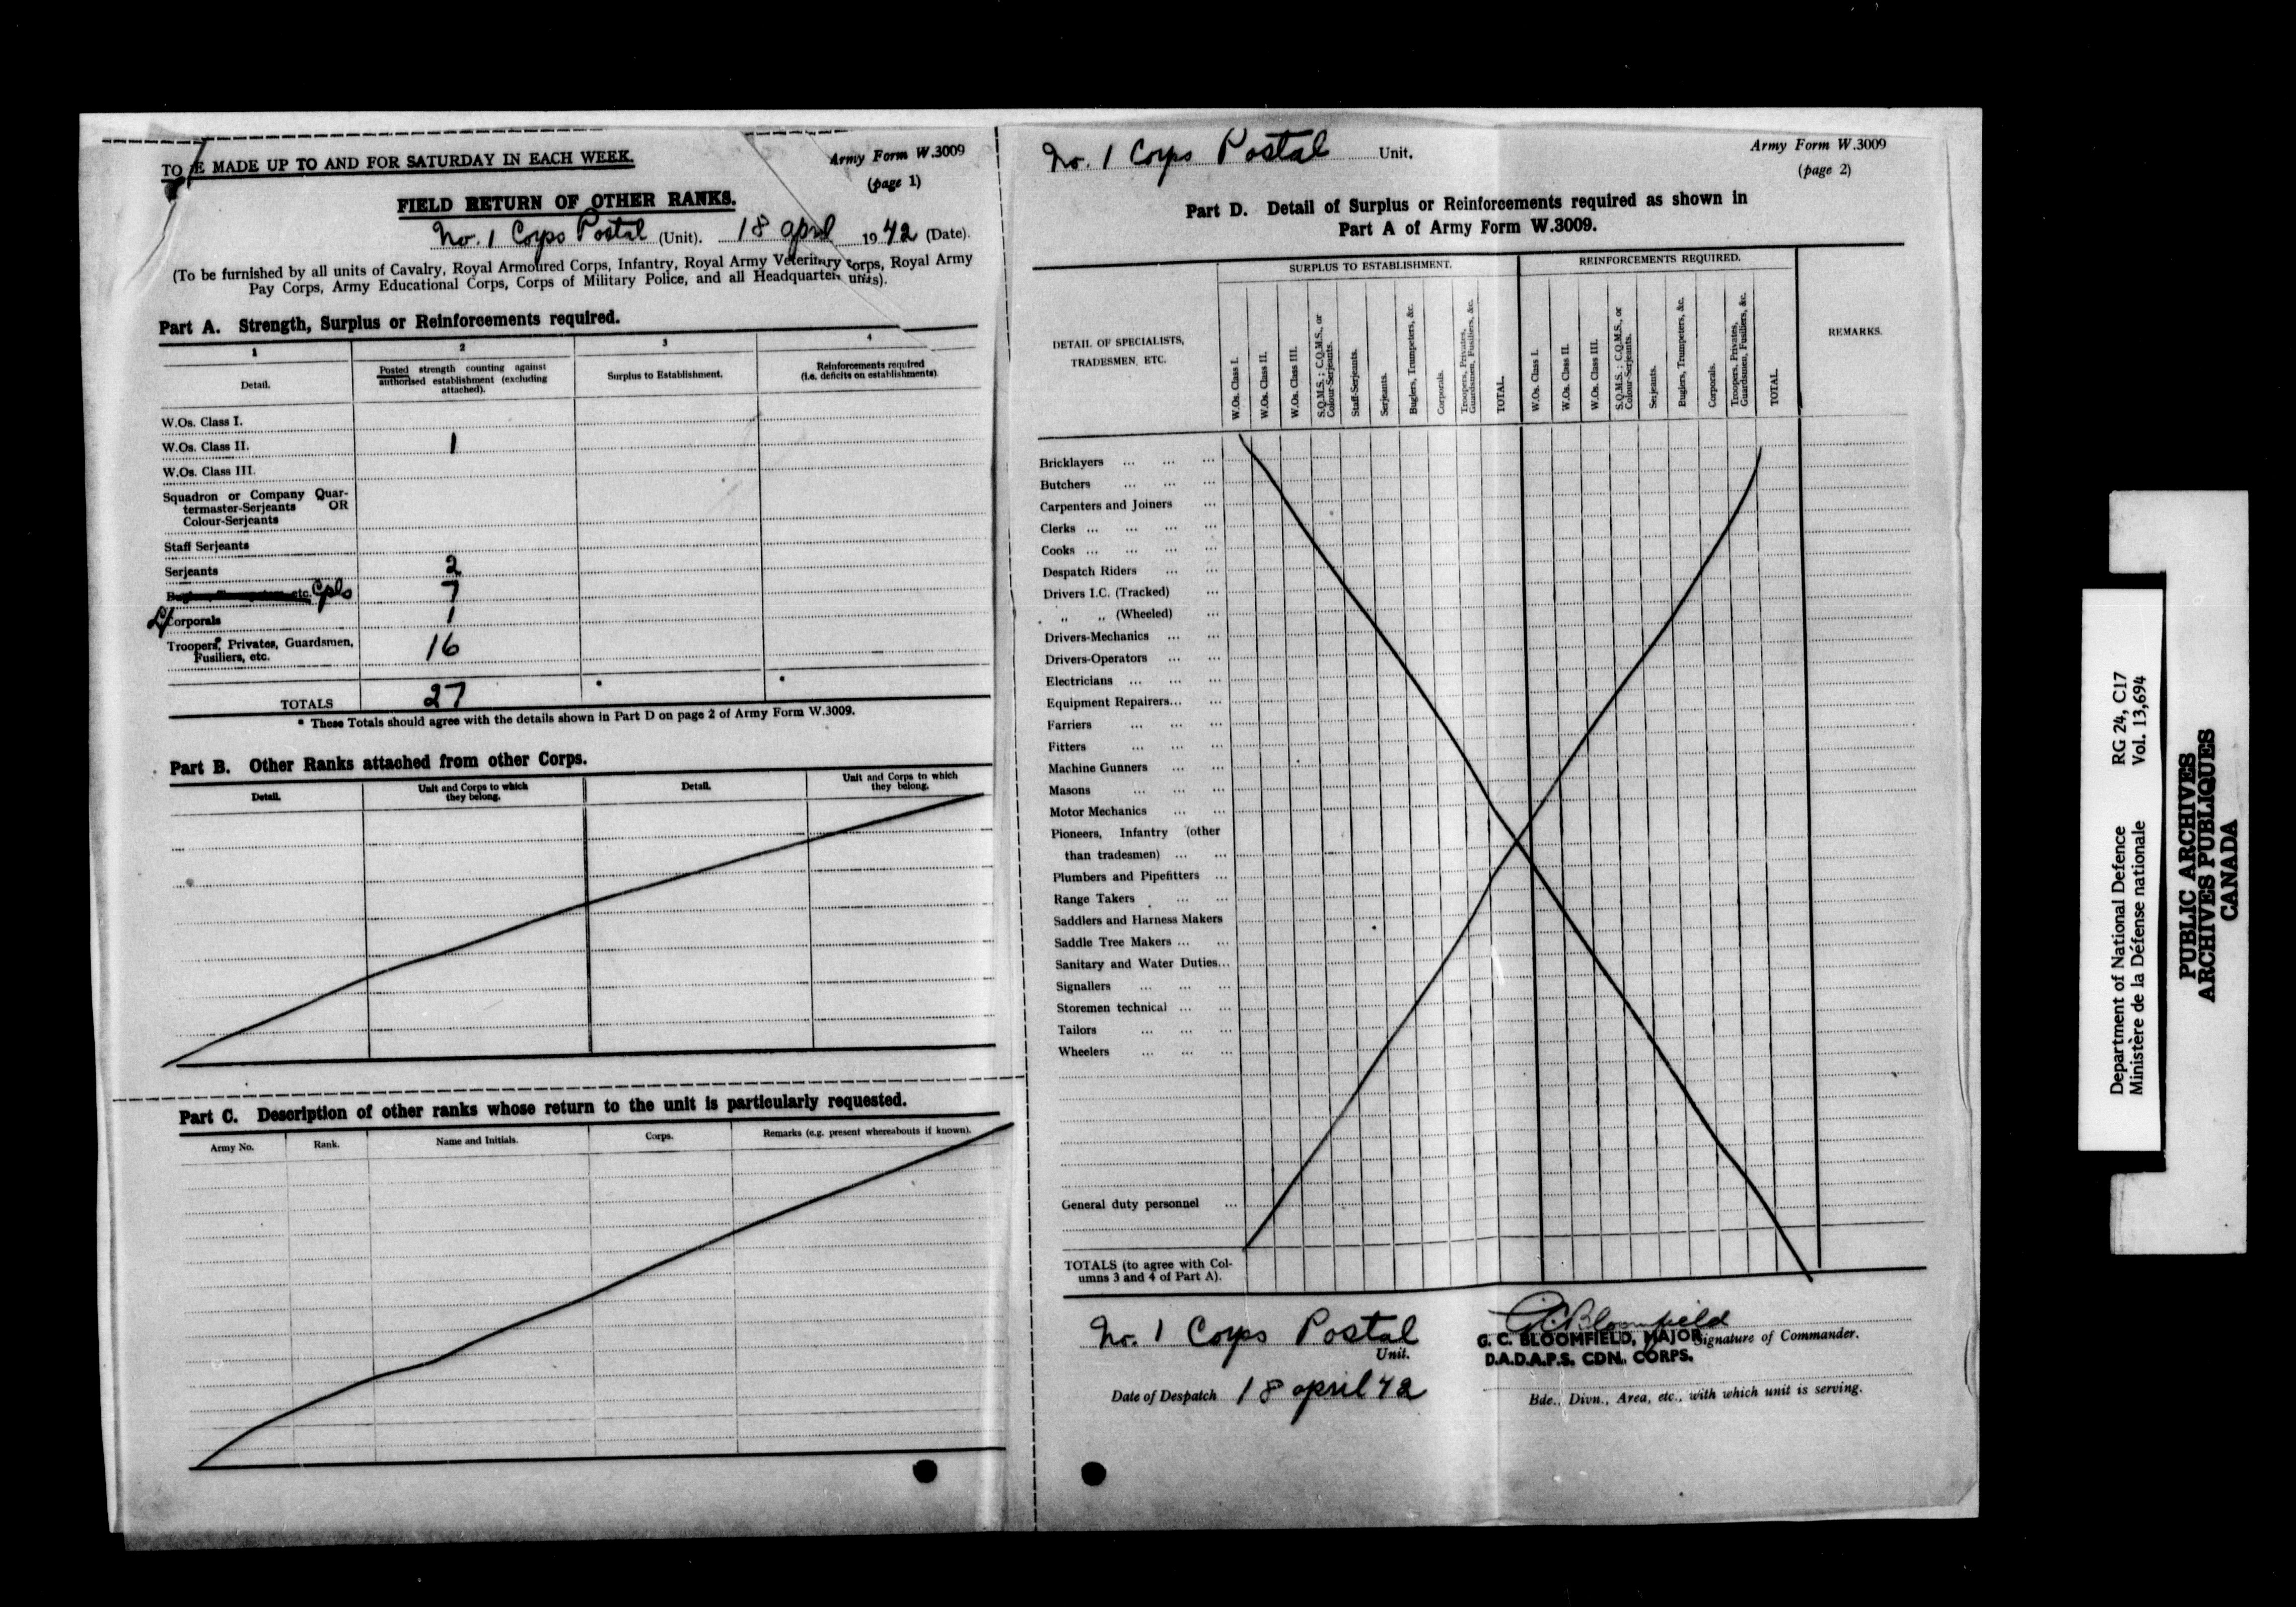 TO BE MADE UP TO AND FOR SATURDAY IN EACH WEEK.
Army Form W.3009
(page 1)
FIELD RETURN OF OTHER RANKS.
No. 1 Corps Postal (Unit). 18 April 1942 (Date).
(To be furnished by all units of Cavalry, Royal Armoured Corps, Infantry, Royal Army Veterinary Corps, Royal Army
Pay Corps, Army Educational Corps, Corps of Military Police, and all Headquarters units).
Part A. Strength, Surplus or Reinforcements required.
1 2 3 4
Detail.
Posted strength counting against
authorised establishment (excluding
attached).
Surplus to Establishment.
Reinforcements required
(i.e. deficits on establishments).
W.Os. Class I.
W.Os. Class II. 1
W.Os. Class III.
Squadron or Company Quar-
termaster-Serjeants OR
Colour-Serjeants
Staff Serjeants
Serjeants 2
etc. Cpls 7
L/Corporals 1
Troopers, Privates, Guardsmen,
Fusiliers, etc. 16
TOTALS 27 * *
* These Totals should agree with the details shown in Part D on page 2 of Army Form W.3009.
Part B. Other Ranks attached from other Corps.
Detail.
Unit and Corps to which
they belong.
Detail.
Unit and Corps to which
they belong.
Part C. Description of other ranks whose return to the unit is particularly requested.
Army No. Rank. Name and Initials. Corps. Remarks (e.g. present whereabouts if known).
No. 1 Corps Postal Unit.
Army Form W.3009
(page 2)
Part D. Detail of Surplus or Reinforcements required as shown in
Part A of Army Form W.3009.
DETAIL OF SPECIALISTS,
TRADESMEN, ETC.
SURPLUS TO ESTABLISHMENT.
W.Os. Class I.
W.Os. Class II.
W.Os. Class III.
S.Q.M.S.; C.Q.M.S., or
Colour-Serjeants.
Staff-Serjeants.
Serjeants.
Buglers, Trumpeters, &c.
Corporals.
Troopers, Privates,
Guardsmen, Fusiliers, &c.
TOTAL.
REINFORCEMENTS REQUIRED.
W.Os. Class I.
W.Os. Class II.
W.Os. Class III.
S.Q.M.S.; C.Q.M.S., or
Colour-Serjeants.
Serjeants.
Buglers, Trumpeters, &c.
Corporals.
Troopers, Privates,
Guardsmen, Fusiliers, &c.
TOTAL.
REMARKS.
Bricklayers ... ... ...
Butchers ... ... ...
Carpenters and Joiners ...
Clerks ... ... ... ...
Cooks ... ... ... ...
Despatch Riders ... ...
Drivers I.C. (Tracked) ...
„ „ (Wheeled) ...
Drivers-Mechanics ... ...
Drivers-Operators ... ...
Electricians ... ... ...
Equipment Repairers... ...
Farriers ... ... ...
Fitters ... ... ...
Machine Gunners ... ...
Masons ... ... ...
Motor Mechanics ... ...
Pioneers, Infantry (other
than tradesmen) ... ...
Plumbers and Pipefitters ...
Range Takers ... ...
Saddlers and Harness Makers
Saddle Tree Makers ... ...
Sanitary and Water Duties...
Signallers ... ... ...
Storemen technical ... ...
Tailors ... ... ...
Wheelers ... ... ...
General duty personnel ...
TOTALS (to agree with Col-
umns 3 and 4 of Part A).
No. 1 Corps Postal
Unit.
Date of Despatch 18 April 42
G C Bloomfield
G. C. BLOOMFIELD, MAJOR Signature of Commander.
D.A.D.A.P.S. CDN. CORPS.
Bde., Divn., Area, etc., with which unit is serving.
Department of National Defence RG 24, C17
Ministère de la Défense nationale Vol. 13,694
PUBLIC ARCHIVES
ARCHIVES PUBLIQUES
CANADA